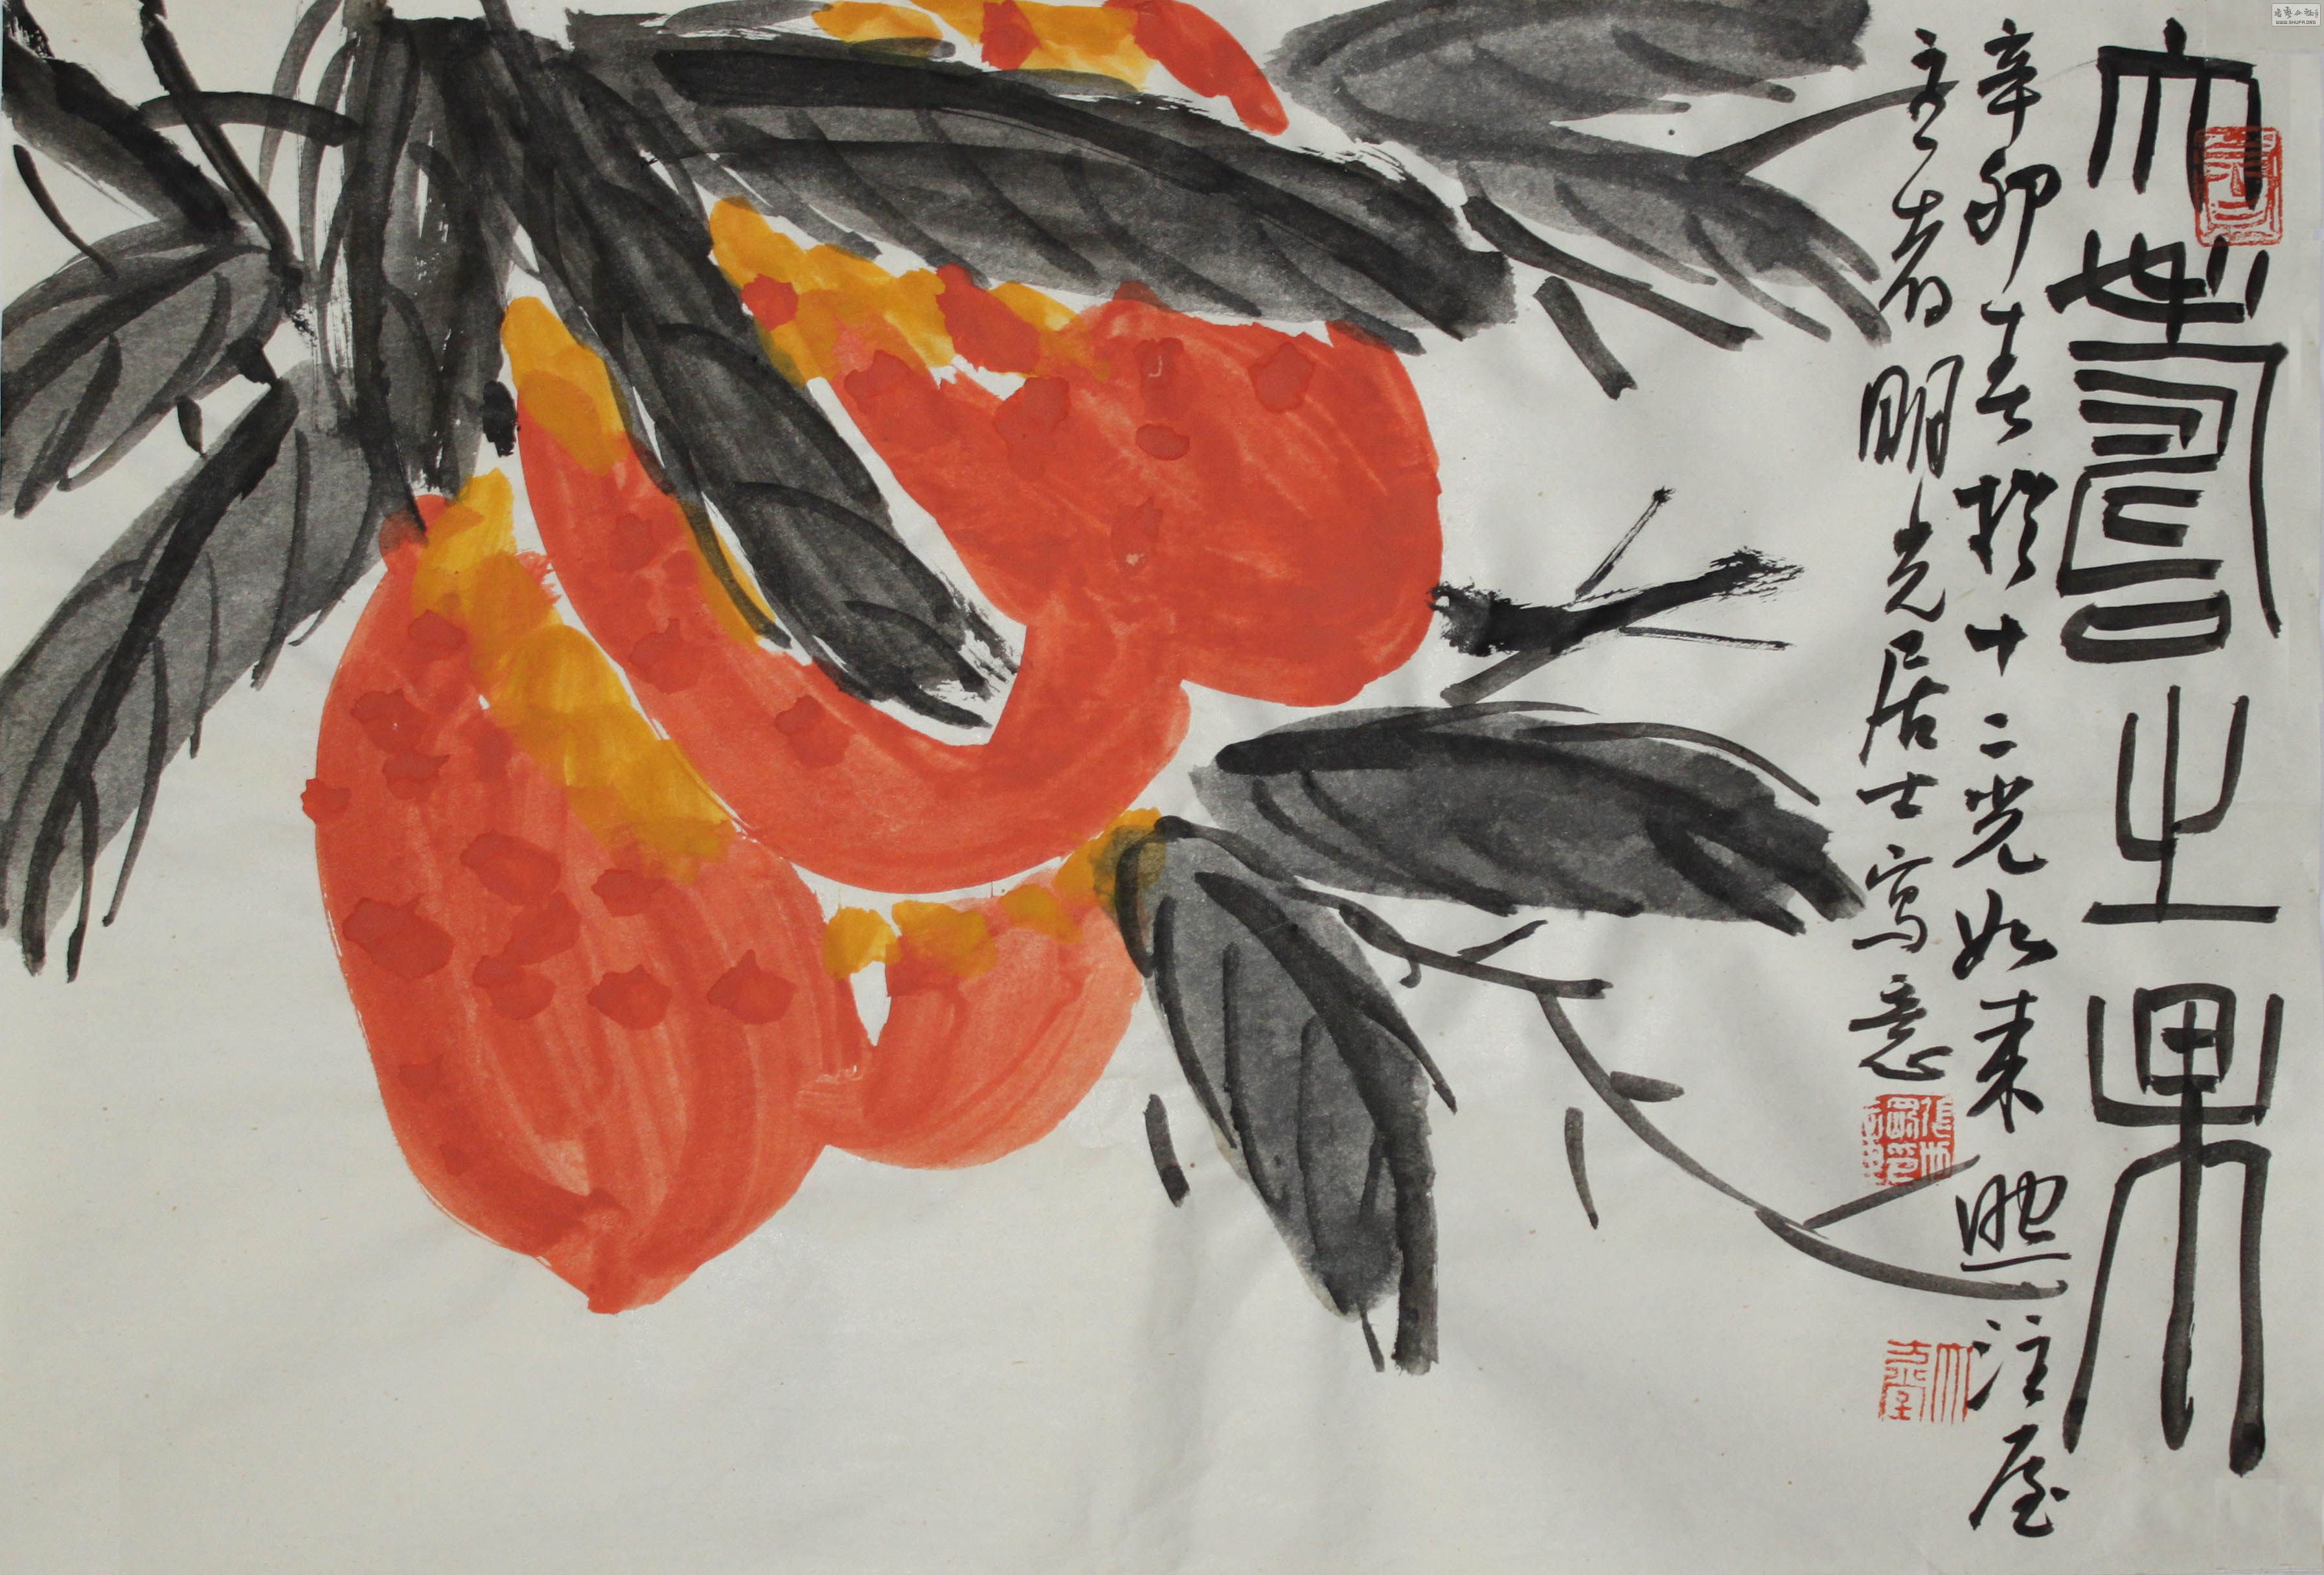 大壽之果
辛卯春於十二光如来照注屋
主者明光居士寫意
WWW.SHUFA.ORG